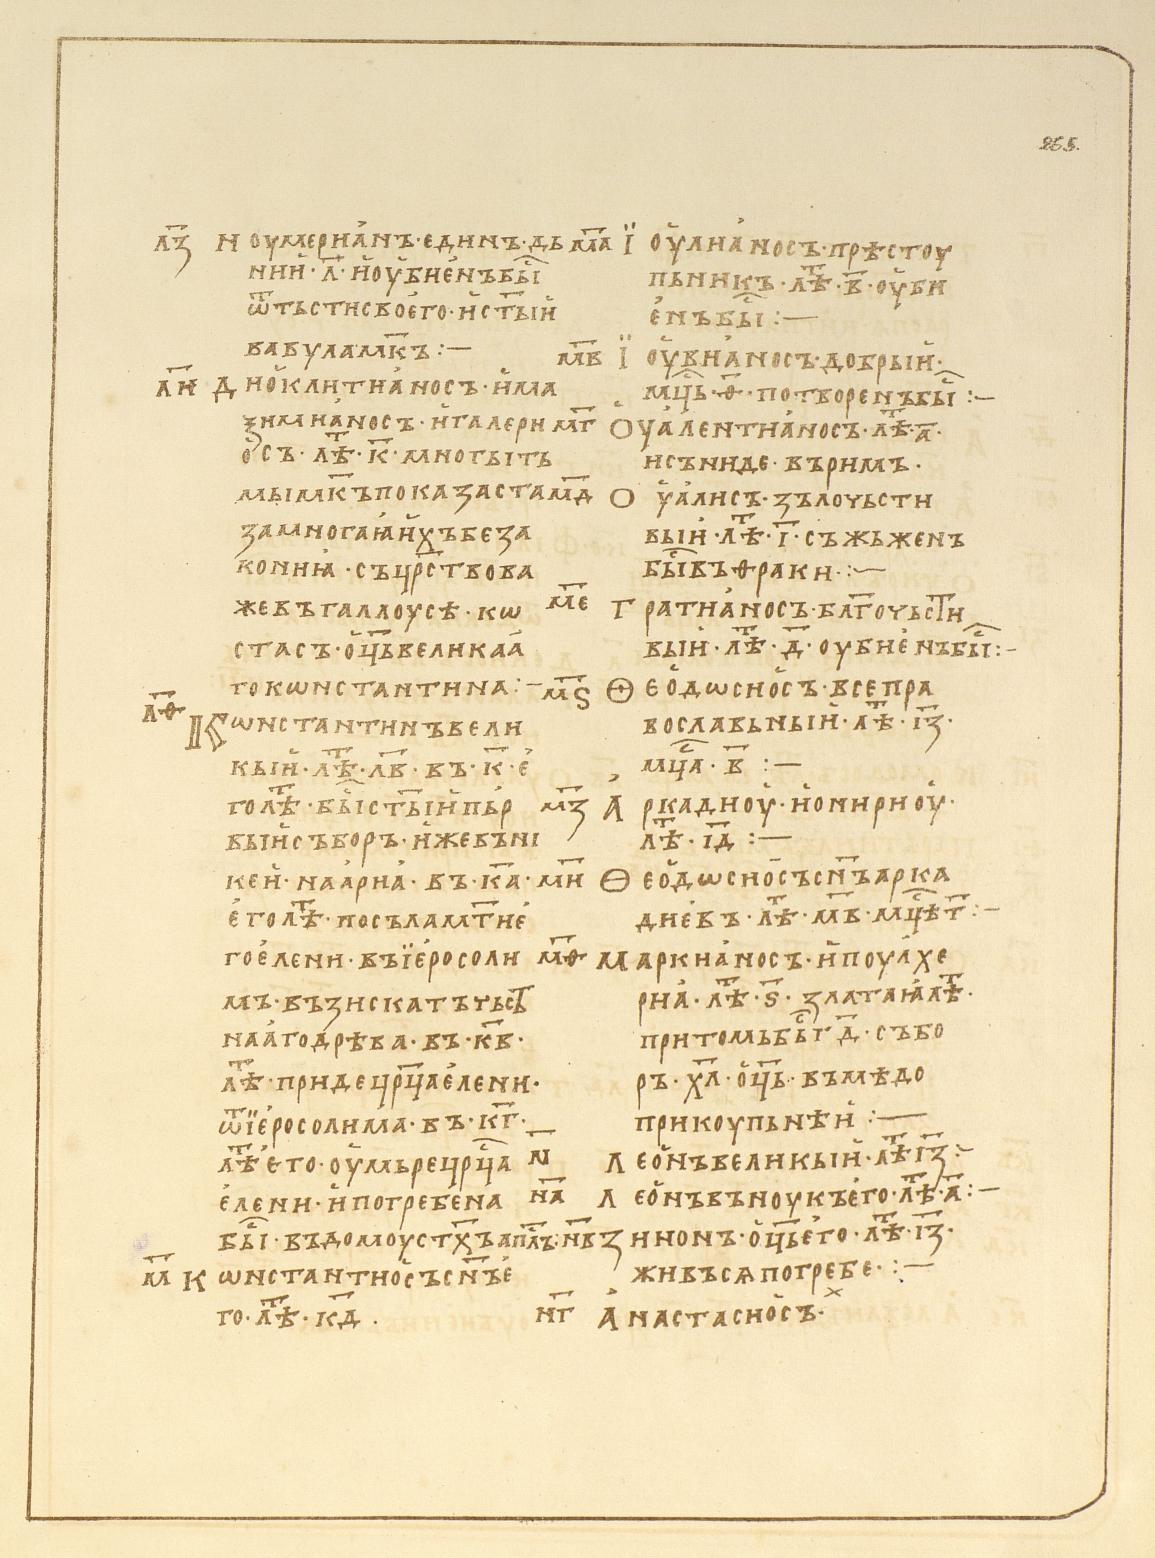 265.
л҃з Ноумериа́нъ·единъ·дь
ний·л҃·и҆оу҆биѐнъбы̑
ѿтьстисвоѐго·и҆ст҃ый
вавуламк҃ъ:—
л҃и Дио҆клитиа́носъ·и҆ма
зимиа́носъ·и҆галери
о҆съ·лѣт·к҃·многыть
мымк҃ъпоказаста
замногаꙗи҆хъбеза
кониꙗ·съцр҃ствова
жевъгаллоусѣ·кѡ
стасъ·ѻц҃ьвеликаа҆
гокѡнстантина:—
л҃ѳ Кѡнстантинъвели
кый·лѣт·л҃в·въ·к҃·ѐ
голѣт·бы̑ст҃ыйпьр
выйсъборъ·и҆жевънi
кеи·наа҆риа҆·въ·к҃а·
ѐголѣт·посъламт҃иѐ
гоѐлени·въїѐросоли
мъ·възискатъчьст
наа҆годрѣва·въ·к҃в·
лѣт·придецр҃цаѐлени·
ѿїѐросолима·въ·к҃г·
лѣтѐго·оу҆мьрецр҃ца
ѐлени·и҆погребѐна
бы̑·въдомоуст҃хъап҃лъ:
м҃ Кѡнстантио҆съсн҃ъѐ
го·лѣт·к҃д.
м҃а Їоу҆лиа́носъ·прѣстоу
пьникъ·лѣт·в҃·оу҆би
ѐнъбы̑:—
м҃в Їоу҆виа́носъ·добрый·
мц҃ь·ѳ҃·потворенъбы̑:—
м҃г Оуа҆лентиа́носъ·лѣт·а҃·
исъниде·въримъ·
м҃д Оу҆а҆лисъ·зълочьсти
вый·лѣт·ı҃·съжьженъ
бы̑въѳраки·:—
м҃е Гратиа́носъ·бл҃гочьсти
вый·лѣт·д҃·оубиѐнъбы̑:—
м҃ѕ Ѳео҆дѡсио҆съ·всепра
вославьный·лѣт·ı҃з·
мц҃а·в҃:—
м҃з А҆ркадиоу҆·и҆онириоу҆·
лѣт·ı҃д:—
м҃и Ѳео҆дѡсио҆съсн҃ъарка
диѐвъ·лѣт·м҃в·мц҃ѣг҃:—
м҃ѳ Маркиа́носъ·и҆поулхе
риа҆·лѣт·ѕ҃·златаꙗлѣт·
притомьбы̑г҃д҃·събо
ръ·х҃л·ѻц҃ь·въмѣдо
прикоупьнѣи҆:—
н҃ Лео҆нъвеликый·лѣтı҃з:—
н҃а Лео҆нъвъноукъѐго·лѣт·а҃:—
н҃в Зинонъ·ѻц҃ьѐго·лѣт·ı҃з·
живъсѧпогребе·:—
н҃г А҆настасио҆съ·